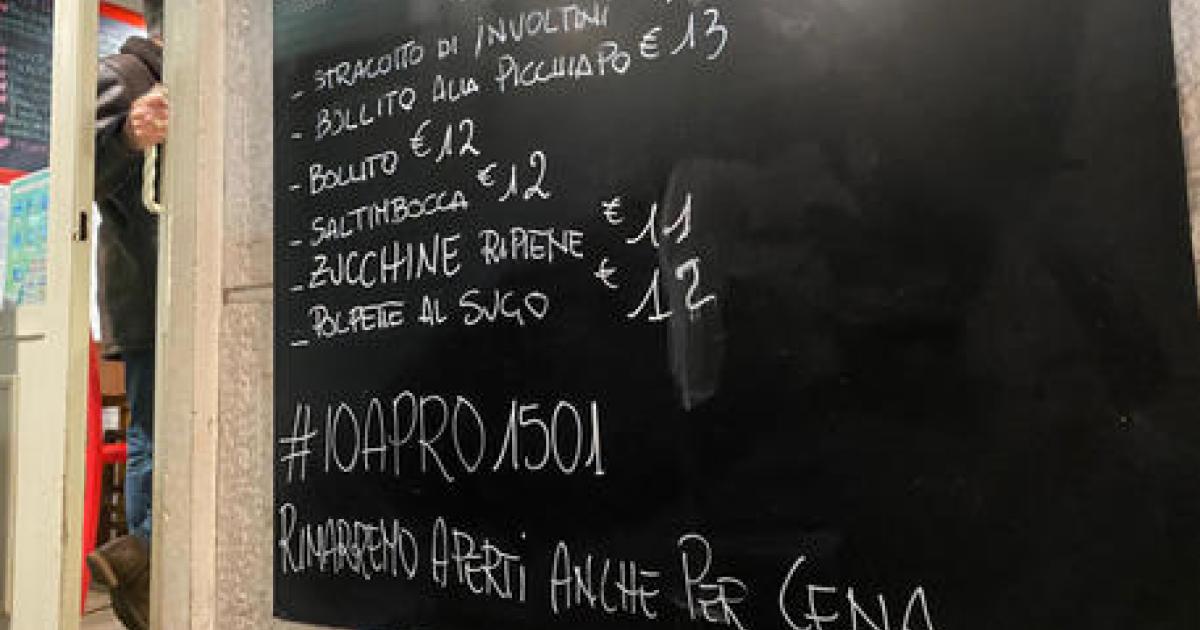 - STRACOTTO DI INVOLTINI
- BOLLITO ALLA PICCHIAPO € 13
- BOLLITO € 12
- SALTIMBOCCA € 12
- ZUCCHINE RIPIENE € 11
- POLPETTE AL SUGO € 12
#IOAPRO1501
RIMARREMO APERTI ANCHE PER CENA